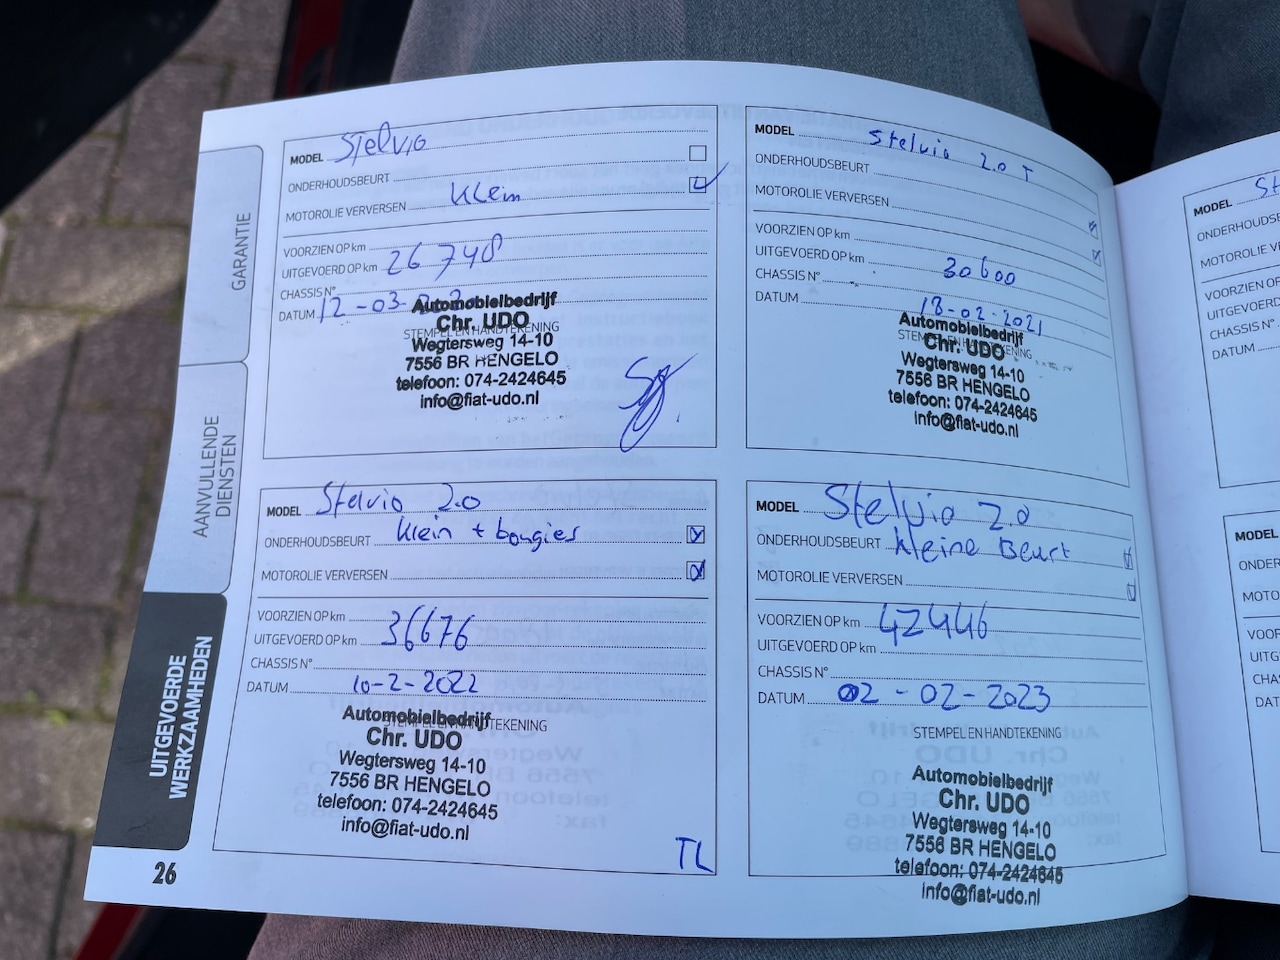 GARANTIE
AANVULLENDE
DIENSTEN
UITGEVOERDE
WERKZAAMHEDEN
26
MODEL Stelvio
ONDERHOUDSBEURT
MOTOROLIE VERVERSEN Klein
VOORZIEN OP km
UITGEVOERD OP km 26748
CHASSIS N°
DATUM 12-03-
STEMPEL EN HANDTEKENING
Automobielbedrijf
Chr. UDO
Wegtersweg 14-10
7556 BR HENGELO
telefoon: 074-2424645
info@fiat-udo.nl
MODEL Stelvio 2.0 T
ONDERHOUDSBEURT
MOTOROLIE VERVERSEN
VOORZIEN OP km
UITGEVOERD OP km 30600
CHASSIS N°
DATUM 18-02-2021
STEMPEL EN HANDTEKENING
Automobielbedrijf
Chr. UDO
Wegtersweg 14-10
7556 BR HENGELO
telefoon: 074-2424645
info@fiat-udo.nl
MODEL Stelvio 2.0
ONDERHOUDSBEURT Klein + bougies
MOTOROLIE VERVERSEN
VOORZIEN OP km
UITGEVOERD OP km 36676
CHASSIS N°
DATUM 10-2-2022
STEMPEL EN HANDTEKENING
Automobielbedrijf
Chr. UDO
Wegtersweg 14-10
7556 BR HENGELO
telefoon: 074-2424645
info@fiat-udo.nl
TL
MODEL Stelvio 2.0
ONDERHOUDSBEURT Kleine Beurt
MOTOROLIE VERVERSEN
VOORZIEN OP km 42446
UITGEVOERD OP km
CHASSIS N°
DATUM 02-02-2023
STEMPEL EN HANDTEKENING
Automobielbedrijf
Chr. UDO
Wegtersweg 14-10
7556 BR HENGELO
telefoon: 074-2424645
info@fiat-udo.nl
MODEL St
ONDERHOUDS
MOTOROLIE V
VOORZIEN OP
UITGEVOERD
CHASSIS N°
DATUM
MODEL
ONDER
MOTO
VOOR
UITG
CHA
DAT